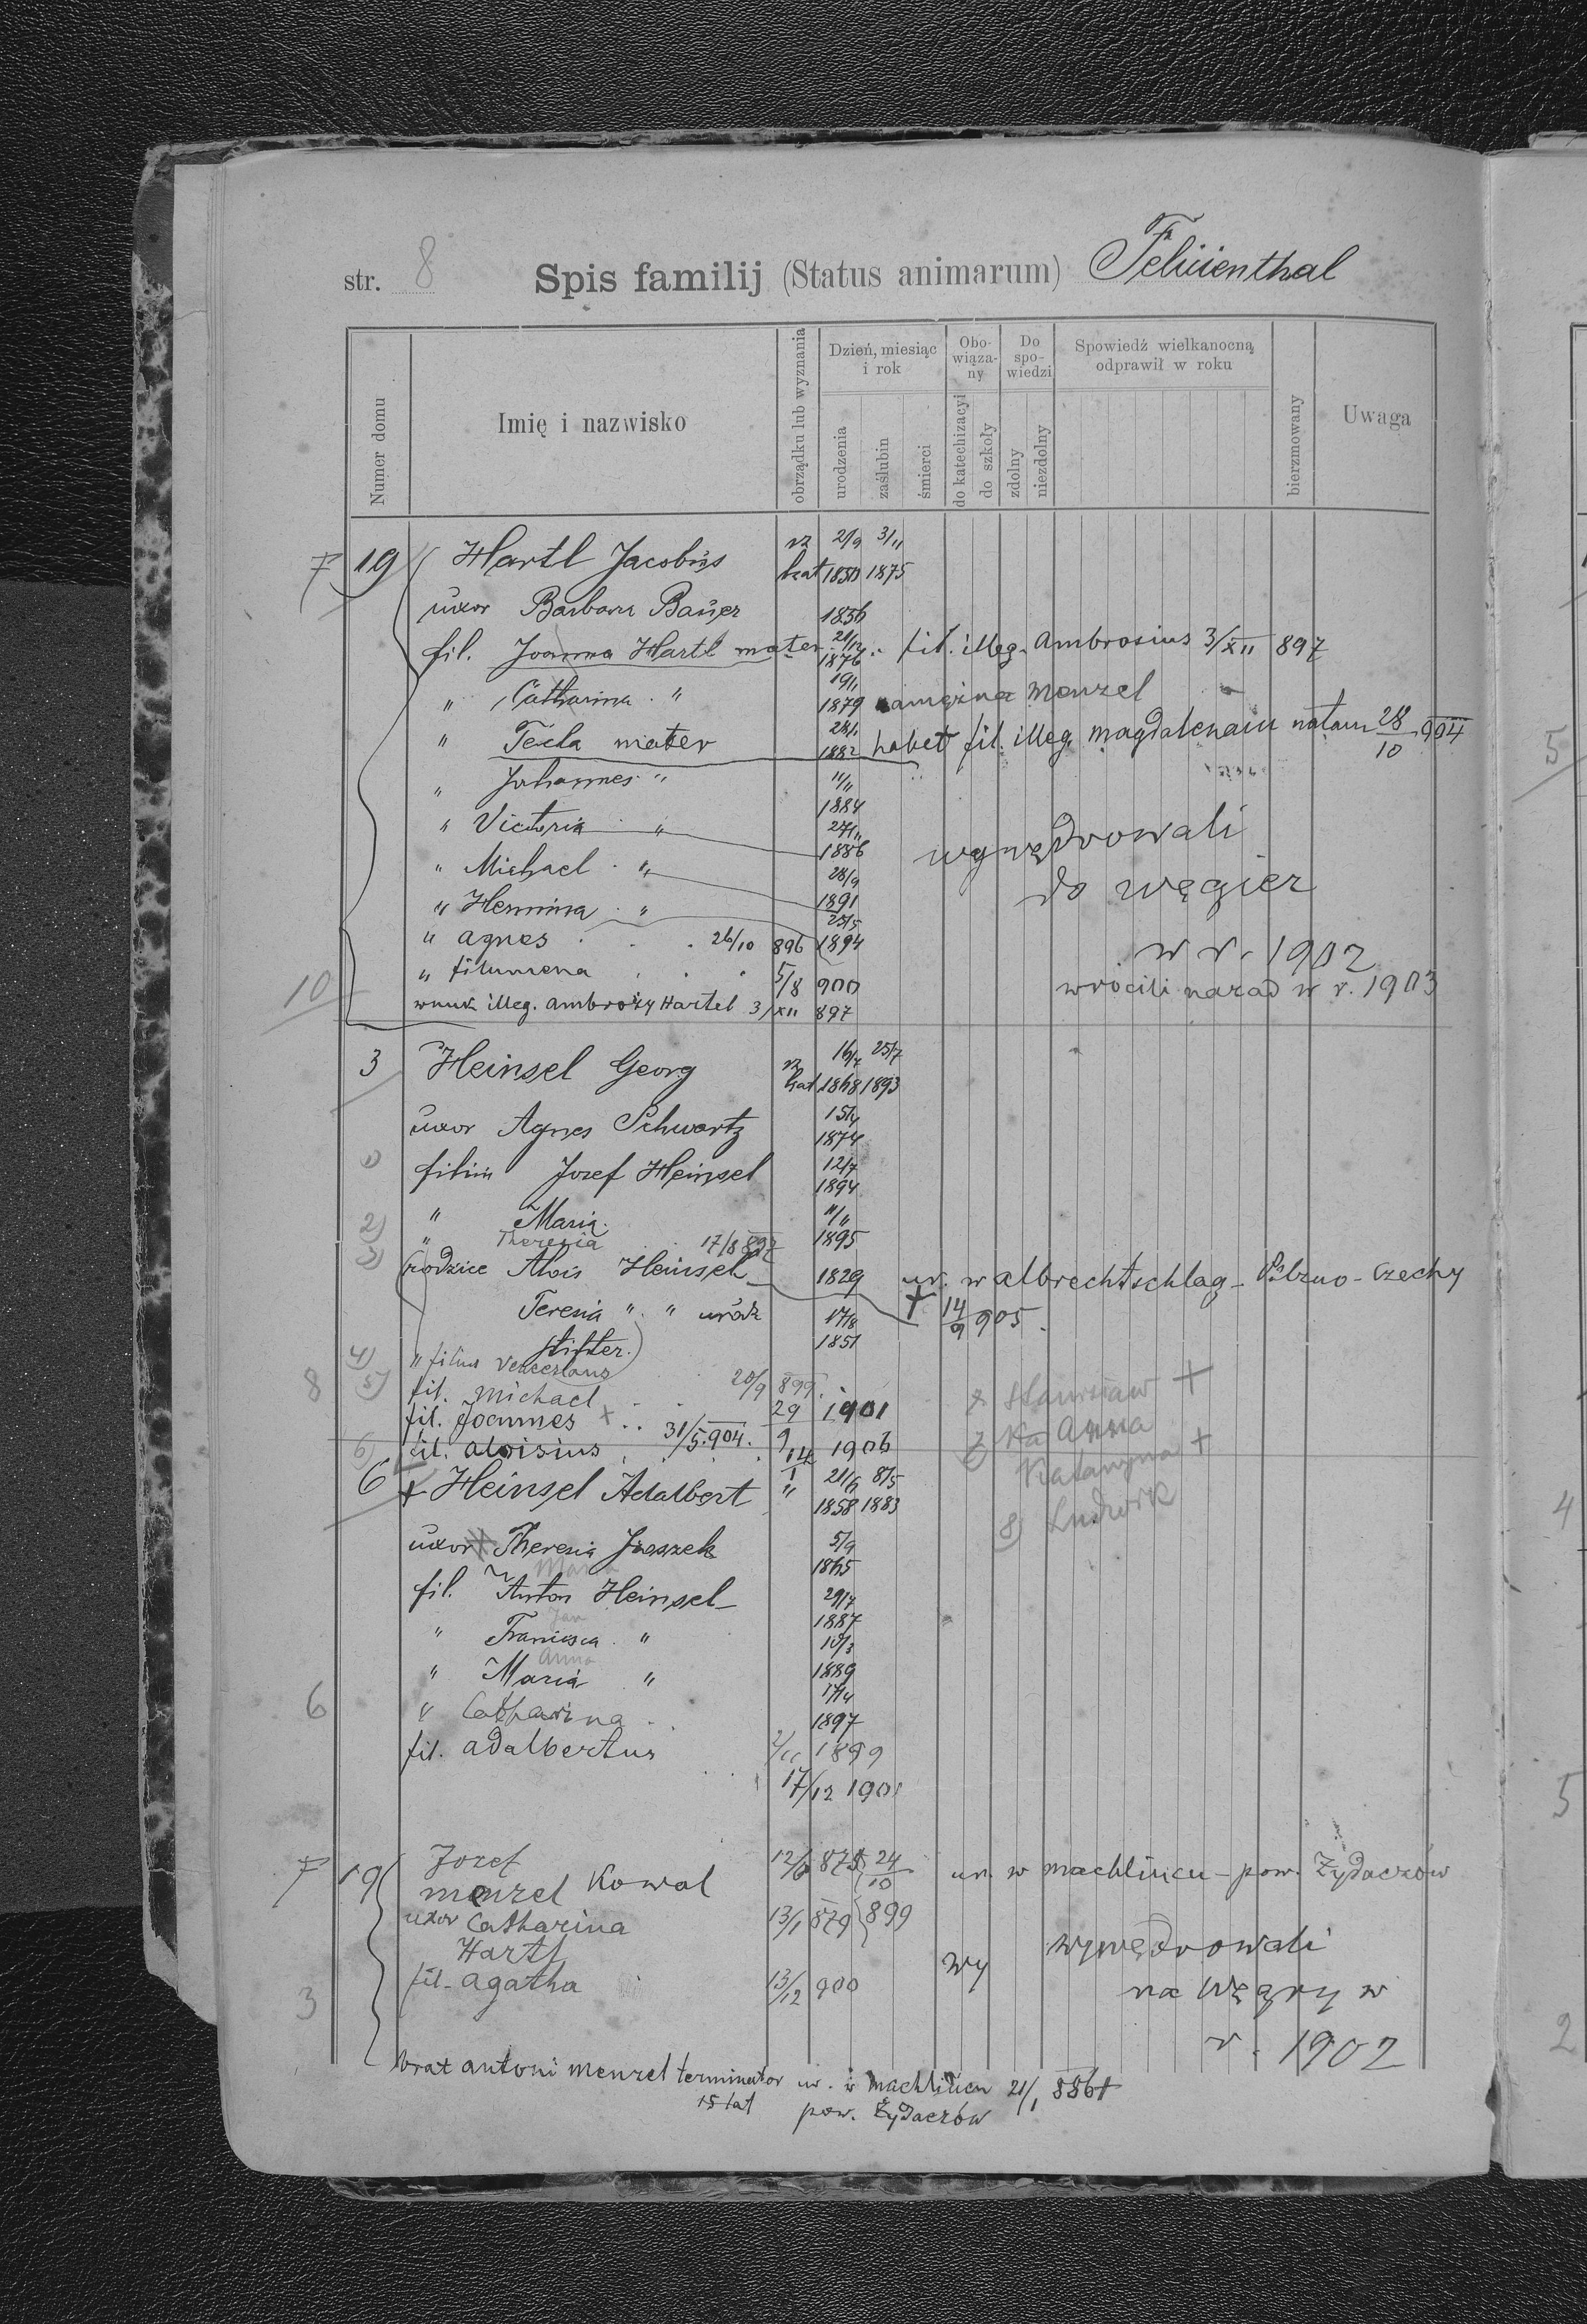 str. 8 Spis familij (Status animarum) Felizienthal
Numer domu
Imię i nazwisko
obrządku lub wyznania
Dzień, miesiąc i rok
urodzenia
zaślubin
śmierci
Obo-wiąza-ny
do katechizacyi
do szkoły
Do spo-wiedzi
zdolny
niezdolny
Spowiedź wielkanocną odprawił w roku
bierzmowany
Uwaga
7 19 Hartl Jacobus rz kat 21/9 1850 3/11 1875
uxor Barbara Bauer 1856
fil. Joanna Hartl mater 1876 fil. illeg. Ambrosius 3/XII 897
" Catharina " 19/11 1879 zamężna Menzel
" Tecla mater 1882 habet fil. illeg. Magdalenam natam 28/10 904
" Johannes " 11/11 1884
" Victoria " 27/11 1886 wywędrowali
" Michael " 28/9 1891 do węgier
" Hermina " 25/5 1894
" Agnes 26/10 896 w r. 1902
" filumena 5/8 900 wrócili nazad w r. 1903
10 wnuk illeg. Ambroży Hartel 3/XII 897
3 Heinsel Georg rz kat 16/7 1868 25/7 1893
uxor Agnes Schwartz 15/4 1874
1) filius Jozef Heinsel 12/7 1894
2) " Maria 11/11 1895
3) " Theresia 17/8 897
rodzice Alois Heinsel 1829 ur. w Albrechtschlag - Pilzno - Czechy
Teresia " " urodz 17/8 1851 † 14/9 905.
Stifter.)
4) " filius Venceslaus 20/9 899.
8 5) fil. Michael 29 1901 Stanisław +
fil. Joannes + 31/5.904. 9 Ka Anna
6) fil. Aloisius 14/1 1906 Katarzyna +
6 + Heinsel Adalbert " 21/6 1858 8/5 1883 8) Ludwik
uxor Theresia Jraszek 5/9 1865
Maria
fil. Anton Heinsel 29/7 1887
Jan
" Francisca " 10/3 1889
Anna
" Maria " 17/4 1897
6 " Catharina 2/11 1899
fil. Adalbertus 17/12 1901
7 19 Jozef Menzel Kowal 12/6 875 24/10 899 ur. w Machlińcu - pow. Żydaczów
uxor Catharina Hartl 13/1 879 wywędrowali
wy
3 fil. Agatha 13/12 900 na Węgry w
r. 1902
brat Antoni Menzel terminator ur. w Machlińcu 21/1 886†
15 lat pow. Żydaczów
5
4
5
2